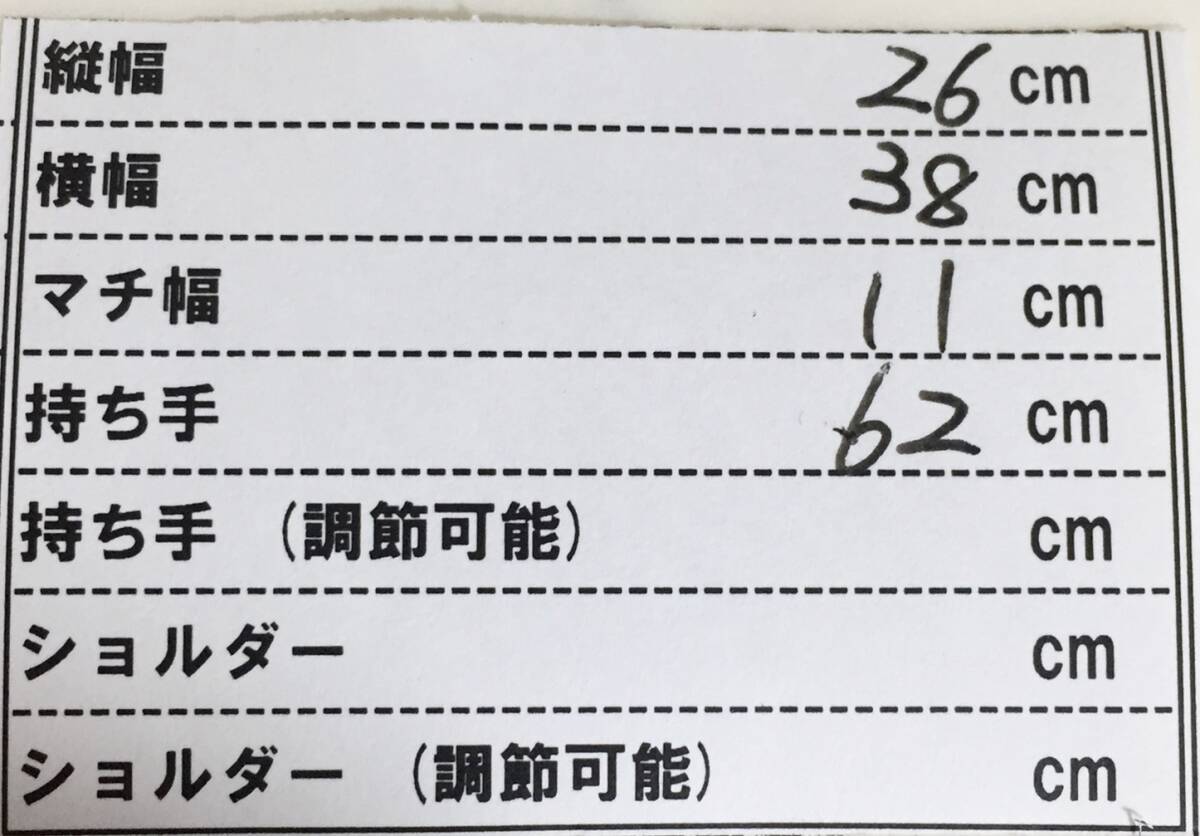 縦幅 26 cm
横幅 38 cm
マチ幅 11 cm
持ち手 62 cm
持ち手 (調節可能) cm
ショルダー cm
ショルダー (調節可能) cm